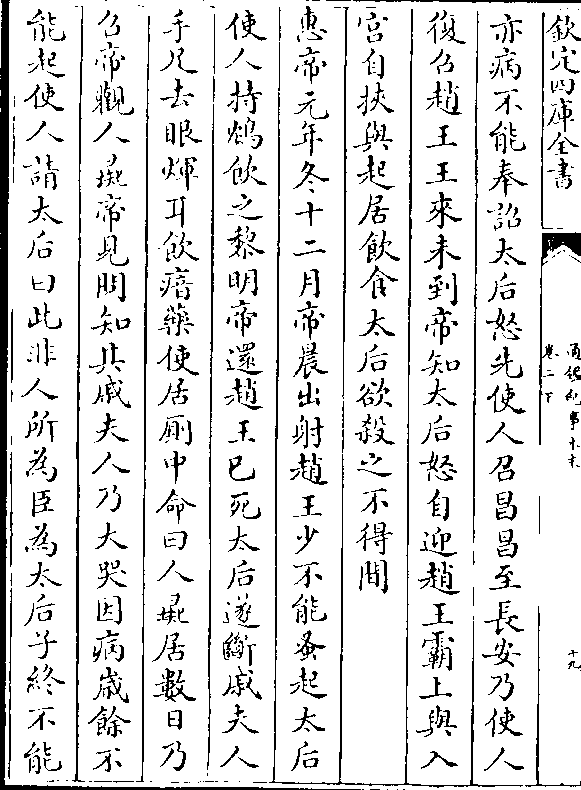 欽定四庫全書
通鑑紀事本末
卷二下
十九
亦病不能奉詔太后怒先使人召昌昌至長安乃使人
復召趙王王來未到帝知太后怒自迎趙王霸上與入
宮自挾與起居飲食太后欲殺之不得間
惠帝元年冬十二月帝晨出射趙王少不能蚤起太后
使人持鴆飲之黎明帝還趙王已死太后遂斷戚夫人
手足去眼煇耳飲瘖藥使居厠中命曰人彘居數日乃
召帝觀人彘帝見問知其戚夫人乃大哭因病歲餘不
能起使人請太后曰此非人所為臣為太后子終不能